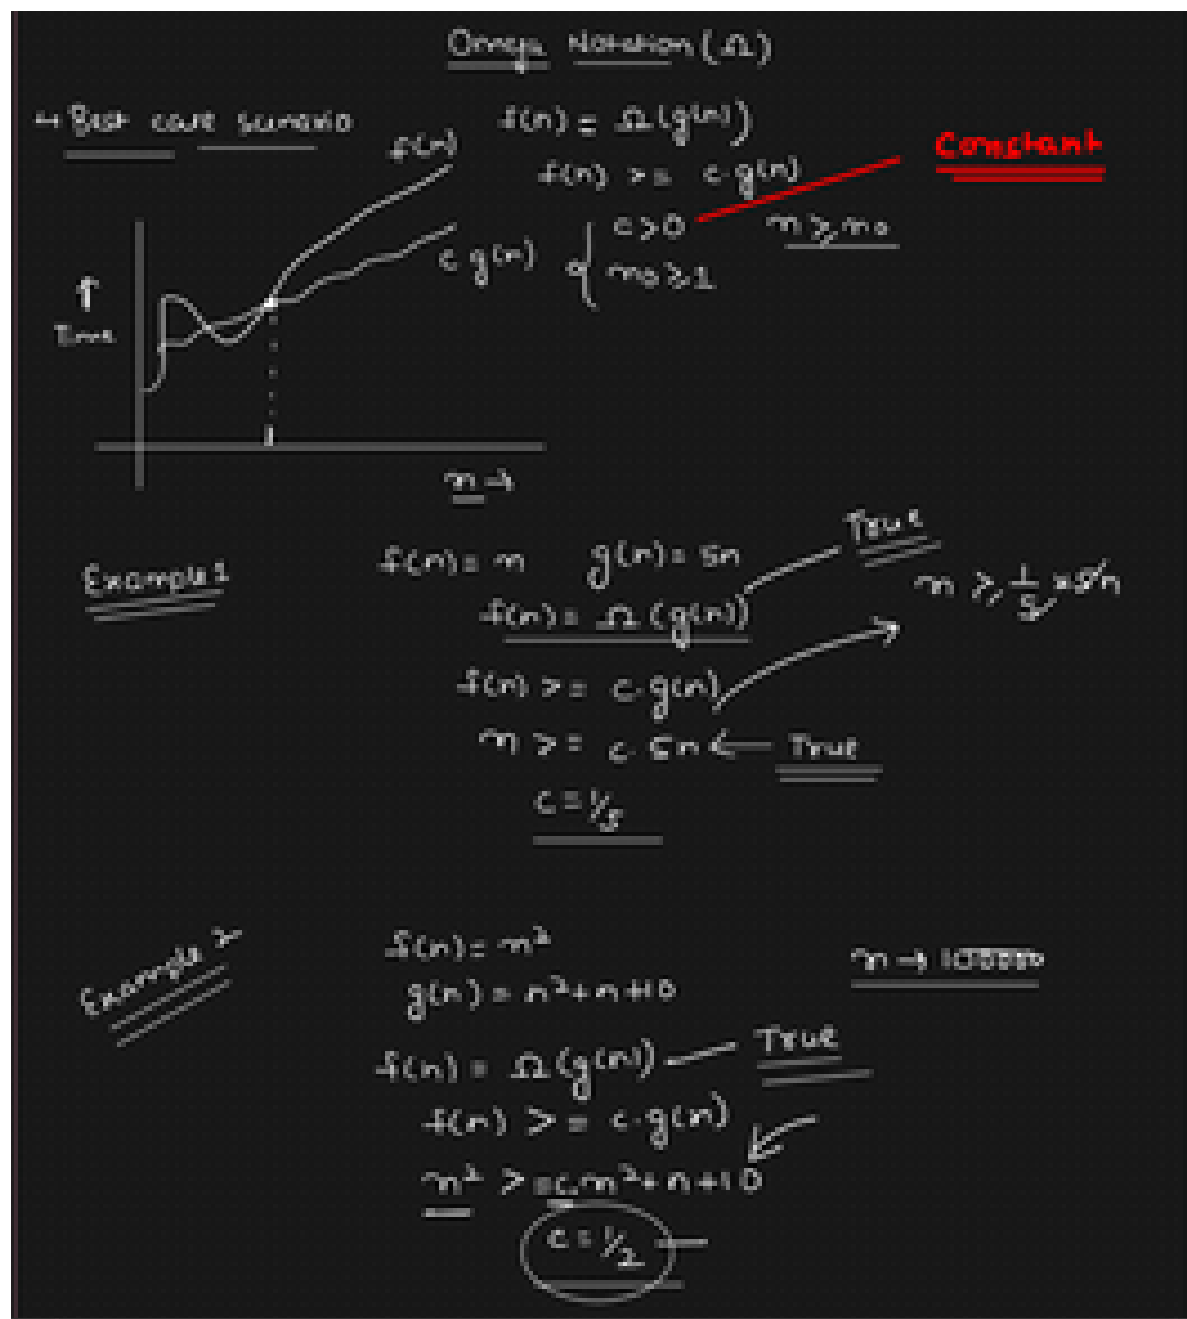 Omega Notation (Ω)
↪ Best case scenario
f(n) = Ω(g(n))
f(n) >= c·g(n)
Constant
c>0
n ≥ n₀
n₀ ≥ 1
f(n)
c g(n)
↑
Time
n →
Example 1
f(n) = n g(n) = 5n
True
f(n) = Ω (g(n))
n ≥ 1/5 × 5n
f(n) >= c·g(n)
n >= c·5n ← True
c = 1/5
Example 2
f(n) = n²
g(n) = n²+n+10
n → 100000
f(n) = Ω(g(n)) — True
f(n) >= c·g(n)
n² >= c.n²+n+10
c = 1/2